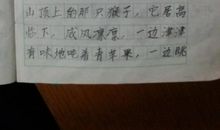 山顶上的那只猴子，它居高
临下，威风凛凛，一边津津
有味地吃着青苹果，一边眺